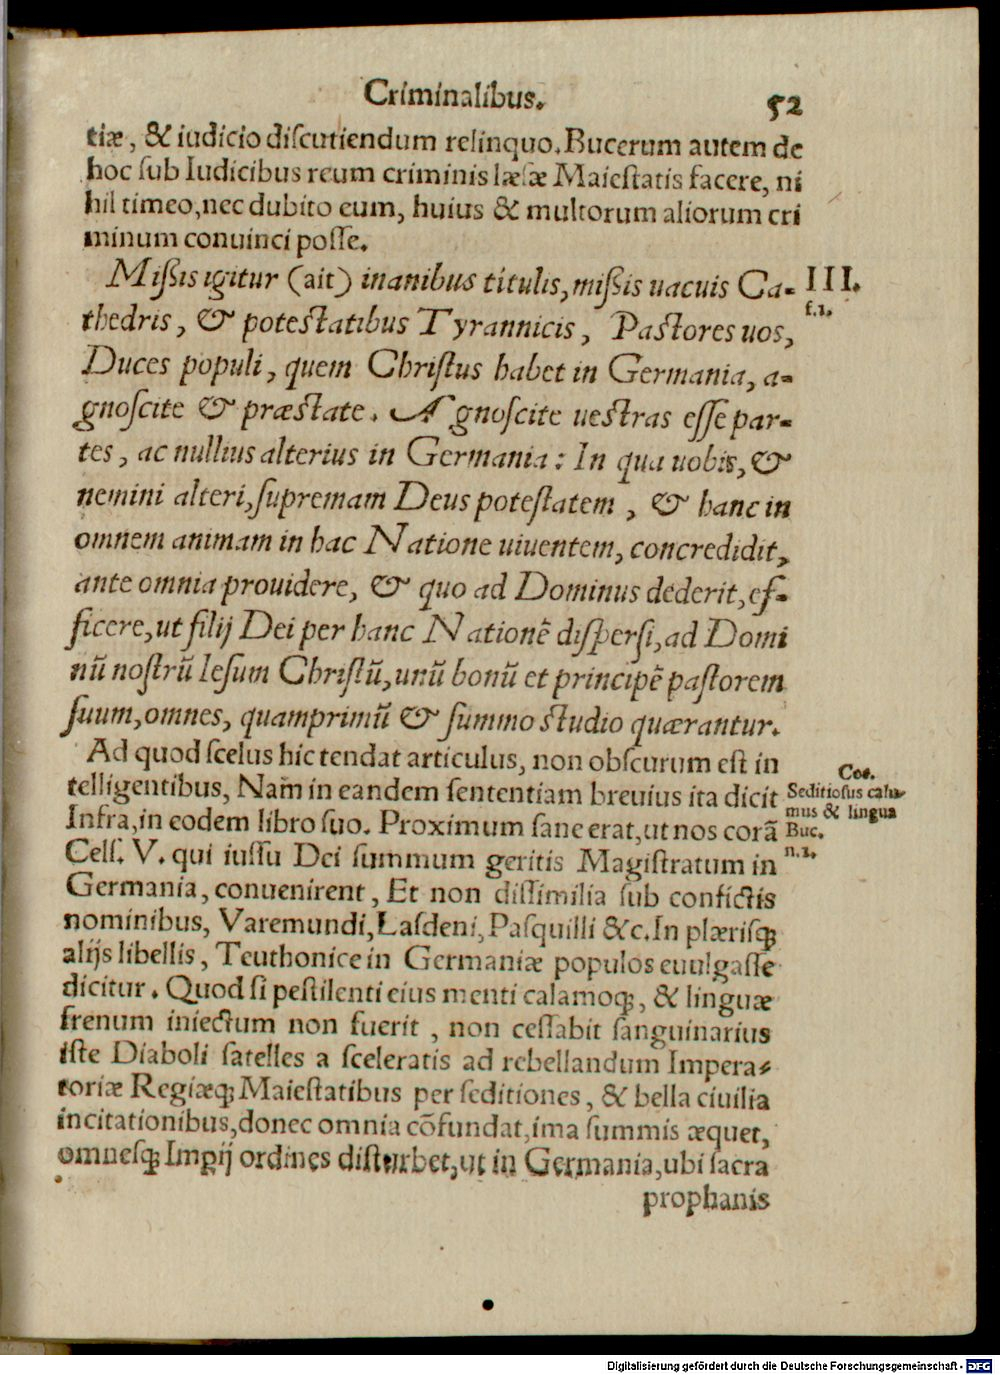 Criminalibus. 52
tiæ, & iudicio diſcutiendum relinquo. Bucerum autem de
hoc ſub Iudicibus reum criminis læſæ Maieſtatis facere, ni
hil timeo, nec dubito eum, huius & multorum aliorum cri
minum conuinci poſſe.
Miſsis igitur (ait) inanibus titulis, miſsis uacuis Ca-
thedris, & poteſtatibus Tyrannicis, Paſtores uos,
Duces populi, quem Chriſtus habet in Germania, a-
gnoſcite & præſtate. Agnoſcite ueſtras eſſe par-
tes, ac nullius alterius in Germania: In qua uobis, &
nemini alteri, ſupremam Deus poteſtatem, & hanc in
omnem animam in hac Natione uiuentem, concredidit,
ante omnia prouidere, & quo ad Dominus dederit, ef-
ficere, ut filij Dei per hanc Nationẽ diſperſi, ad Domi
nũ noſtrũ Ieſum Chriſtũ, unũ bonũ et principẽ paſtorem
ſuum, omnes, quamprimũ & ſummo ſtudio quærantur.
III.
f.1.
Ad quod ſcelus hic tendat articulus, non obſcurum eſt in
telligentibus, Nam in eandem ſententiam breuius ita dicit
Infra, in eodem libro ſuo. Proximum ſane erat, ut nos corã
Celſ. V. qui iuſſu Dei ſummum geritis Magiſtratum in
Germania, conuenirent, Et non diſſimilia ſub confictis
nominibus, Varemundi, Laſdeni, Paſquilli &c. In plæriſq;
alijs libellis, Teuthonice in Germaniæ populos euulgaſſe
dicitur. Quod ſi peſtilenti eius menti calamoq;, & linguæ
frenum iniectum non fuerit, non ceſſabit ſanguinarius
iſte Diaboli ſatelles a ſceleratis ad rebellandum Impera-
toriæ Regiæq; Maieſtatibus per ſeditiones, & bella ciuilia
incitationibus, donec omnia cõfundat, ima ſummis æquet,
omneſq; Impij ordines diſturbet, ut in Germania, ubi ſacra
prophanis
Seditioſus cala-
mus & lingua
Buc.
n.1.
Digitalisierung gefördert durch die Deutsche Forschungsgemeinschaft - DFG